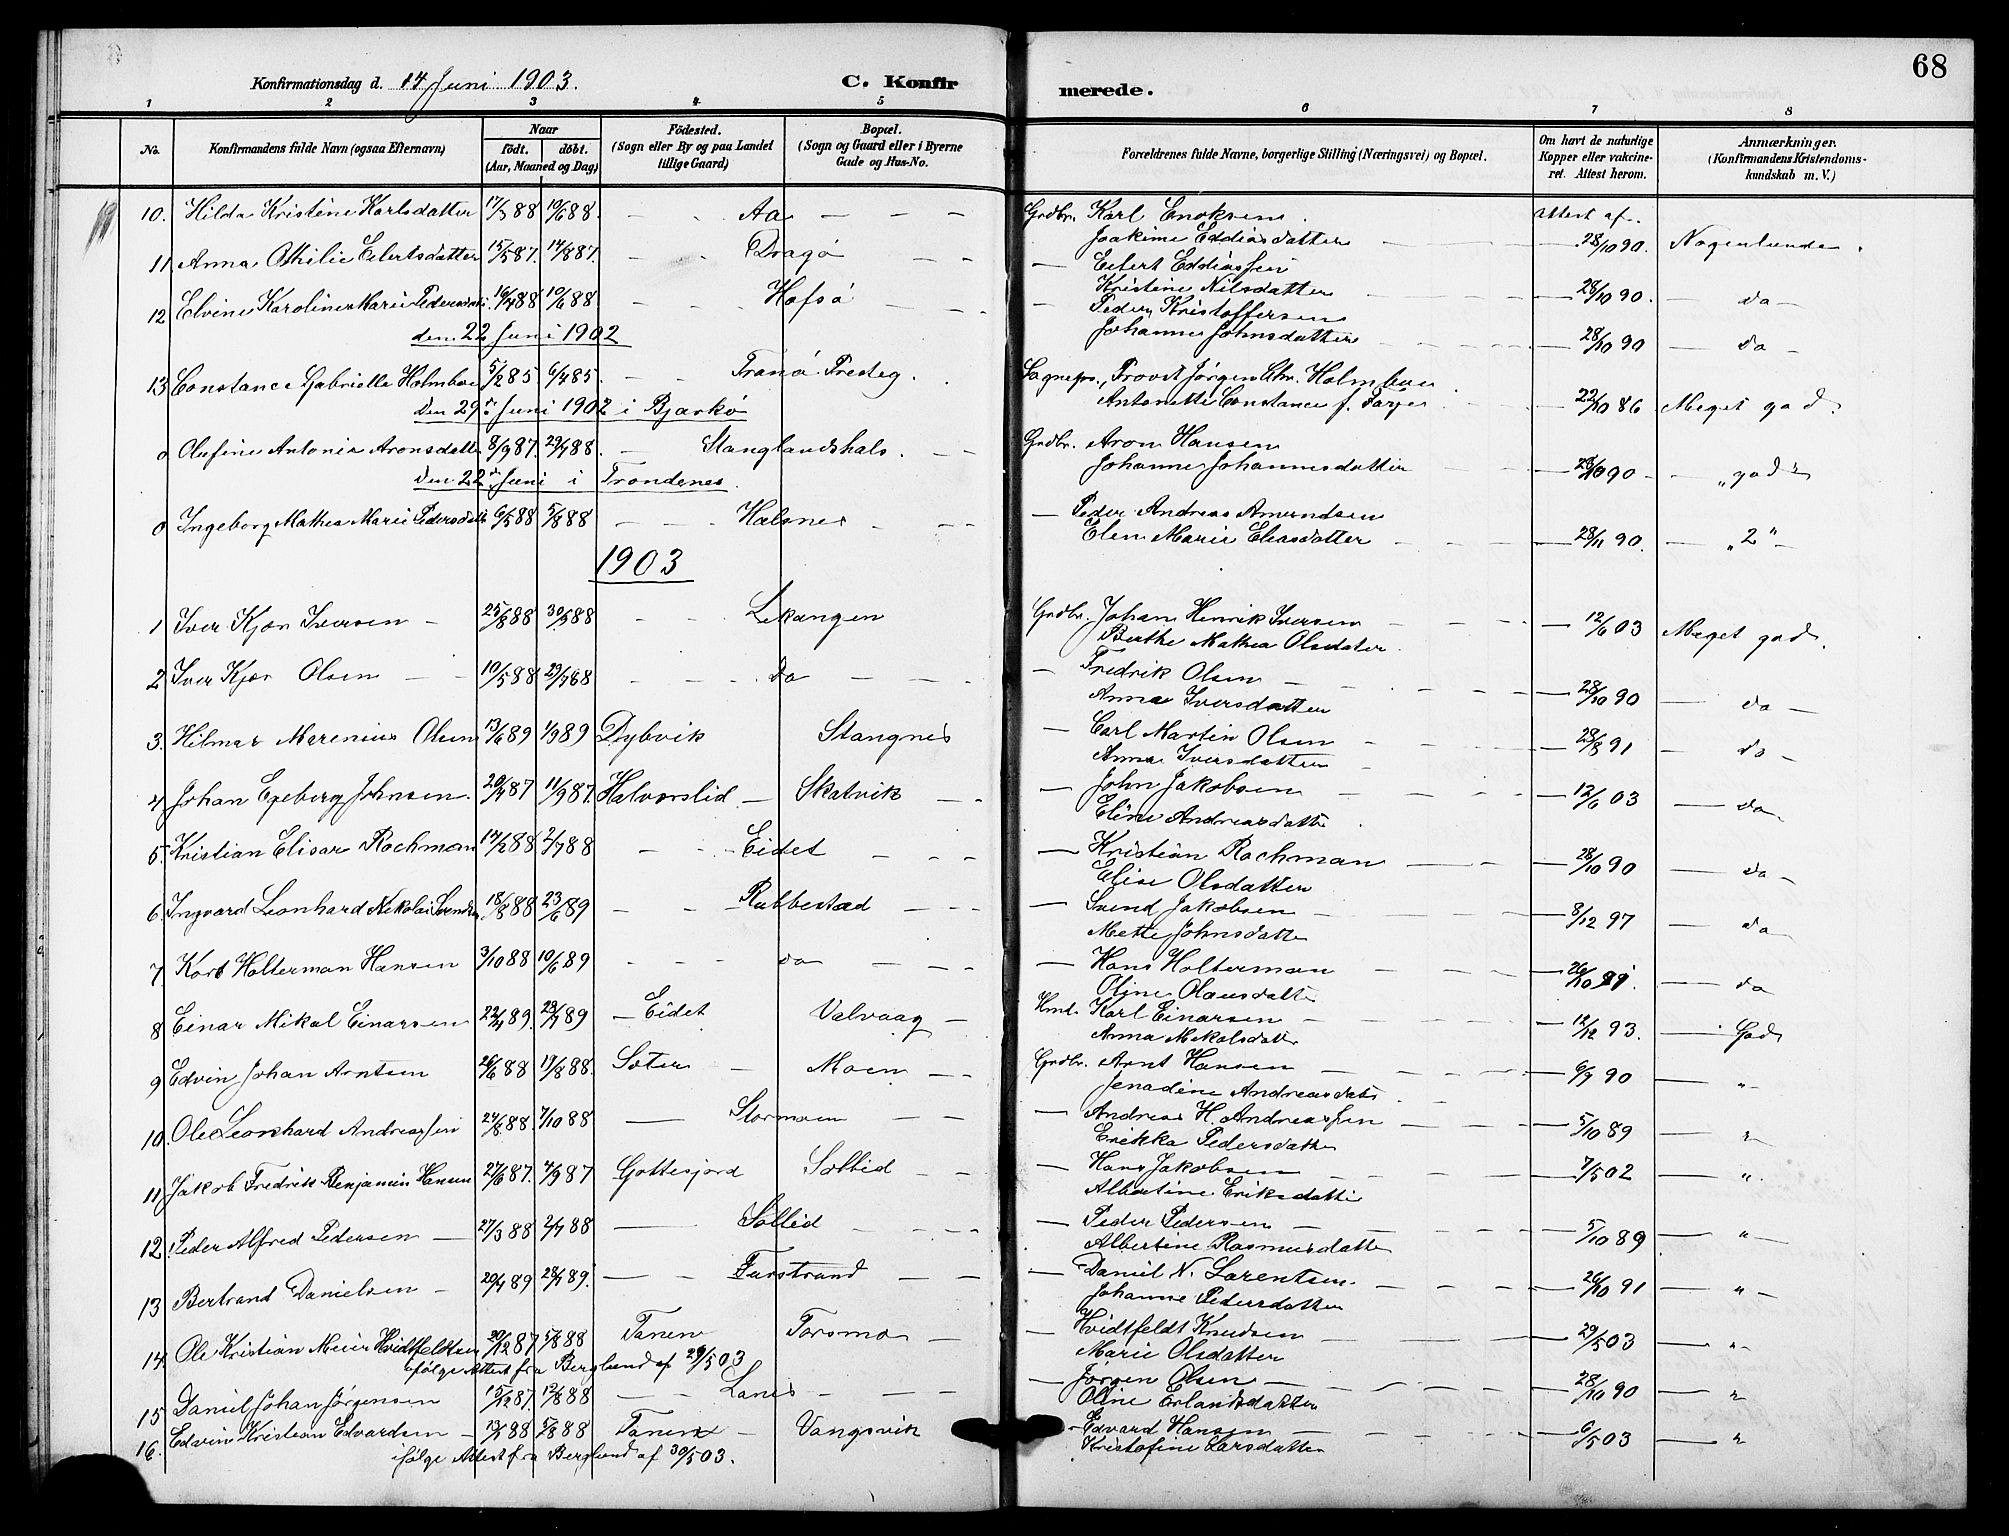 68
Konfirmationsdag d. 14 Juni 1903.
C. Konfirmerede.
1 2 3 4 5 6 7 8
No. Konfirmandens fulde Navn (ogsaa Efternavn) Naar födt. döbt. (Aar, Maaned og Dag) Födested. (Sogn eller By og paa Landet tillige Gaard) Bopæl. (Sogn og Gaard eller i Byerne Gade og Hus-No. Forældrenes fulde Navne, borgerlige Stilling (Næringsvei) og Bopæl. Om havt de naturlige Kopper eller vakcineret. Attest herom. Anmærkninger. (Konfirmandens Kristendomskundskab m. V.)
10. Hilda Kristine Karlsdatter 17/3 88 10/6 88. Aa Grdbr. Karl Enoksen Attest af.
Joakime Eddiasdatter 28/10 90. Nogenlunde.
11. Anna Othilie Eilertsdatter 15/5 87. 14/8 87. Dragö Eilert Eddiassen
Kristine Nilsdatter 28/10 90. do
12 Elvine Karoline Marie Pedersdatter 16/4 88 10/6 88 Hofsö Peder Kristoffersen
den 22 Juni 1902 Johanne Johnsdatter 28/10 90 do
13 Constance Gabrielle Holmboe 5/2 85 6/4 85. Tranö Presteg. Sognepr., Provst Jørgen Chr. Holmboe
den 29de Juni 1902 i Bjarkö Antonette Constance f. 22/10 86 Meget god.
0 Olufine Antonie Aronsdatter 8/9 87. 29/4 88. Stanglandshals. Grdbr. Aron Hansen
den 22de Juni i Trondenes. Johanne Johannesdatter 28/10 90 "god"
0 Ingeborg Mathea Marie Pedersdatter 6/5 88 5/8 88 Halsnes Peder Andreas Amundsen
Elen Marie Eliasdatter 28/11 90. "2"
1903
1 Iver Kjær Iversen 25/8 88 30/9 88 Lekangen Grdbr. Johan Henrik Iversen 12/6 03 Meget god.
Berthe Mathea Olsdatter.
2 Iver Kjær Olsen 10/5 88 29/7 88 do Fredrik Olsen
Anna Iversdatter 28/10 90 do
3. Hilmar Marenius Olsen 13/6 89 1/9 89 Dybvik Stangnes Carl Martin Olsen 28/8 91 do
Anna Iversdatter
4 Johan Egeberg Johnsen. 20/7 87 11/9 87. Halvorslid Skatvik John Jakobsen 12/6 03 do
Eline Andreasdatter
5. Kristian Elisar Rochman 14/2 88 2/7 88 Eidet Kristian Rochman 28/10 90 do
Elise Olsdatter
6. Ingvard Leonhard Nikolai Svendsen 18/8 88 23/6 89 Rubbestad Svend Jakobsen 8/12 97 do
Mette Johnsdatter
7 Kort Holterman Hansen 3/10 88 10/6 89 do Hans Holterman 26/10 91. do
Oline Olausdatter
8 Einar Mikal Einarsen 22/4 89. 29/7 89 Eidet Valvaag Hmd. Karl Einarsen 12/12 93. God
Anna Mikalsdatter
9 Edvin Johan Arntsen 26/6 88 19/8 88. Söter Moen Grdbr. Arnt Hansen 6/9 90 "
Jenadine Andreasdatter
10. Ole Leonhard Andreassen 24/8 88. 7/10 88 Stormoen Andreas H. Andreassen 5/10 89 "
Erikka Pedersdatter
11 Jakob Fredrik Benjamin Hansen 27/6 87. 4/9 87 Gottesjord Sollid Hans Jakobsen 7/5 02 "
Albertine Eriksdatter
12 Peder Alfred Pedersen 27/3 88 2/7 88 Sollid Peder Pedersen 5/10 89 "
Albertine Rasmusdatter
13 Bertrand Danielsen 20/4 89 28/7 89. Furstrand Daniel N. Lorentsen. 26/10 91 "
Johanne Pedersdatter
14. Ole Kristian Meier Hvidtfeldtsen 20/12 87 5/8 88 Tanen Torsmo Hvidtfeldt Knudsen 29/5 03 "
ifölge Attest fra Berglund af 29/5 03 Marie Olsdatter
15 Daniel Johan Jørgensen 15/12 87. 12/8 88 Lanes Jörgen Olsen 28/10 90 "
Oline Erlandsdatter
16. Edvin Kristian Edvardsen 5/8 88 Tanen Vangsvik Edvard Hansen 6/5 03 "
ifölge Attest fra Berglund af 30/5 03. Kristofine Larsdatter